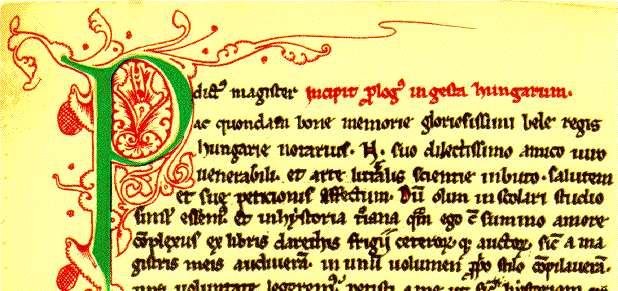 P dict⁹ magister incipit plog⁹ in gesta hungarum.
ac quondam bone memorie gloriosissimi bele regis
hungarie notarius. N. suo dilectissimo amico uiro
uenerabili. et arte litt̃alis scientie inbuto. salutem
et sue peticionis effectum. Dũ olim in scolari studio
simul essem⁹ et in hystoria t̃iana q̃m ego c̃ summo amore
cõplexus ex libris daretis frigii ceteror̃ q̨ auctor̃ sic̃ a ma
gistris meis audiuerã. in unũ uolumen p̃p̃o stilo cõpilauerã.